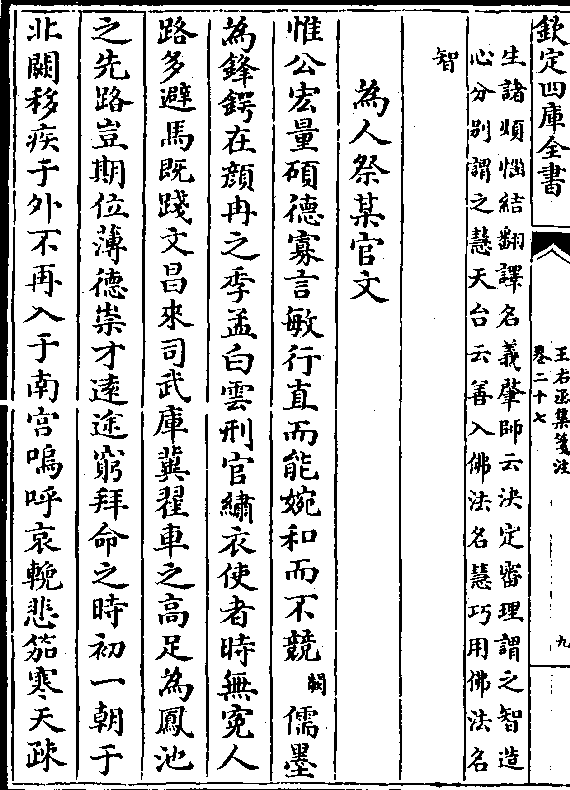 欽定四庫全書
王右丞集箋注
卷二十七
九
生諸煩惱結翻譯名義肇師云決定審理謂之智造
心分別謂之慧天台云善入佛法名慧巧用佛法名
智
為人祭某官文
惟公宏量碩德寡言敏行直而能婉和而不競闕儒墨
為鋒鍔在顔冉之季孟白雲刑官繡衣使者時無寃人
路多避馬既踐文昌來司武庫冀翟車之高足為鳳池
之先路豈期位薄德崇才逺途窮拜命之時初一朝于
北闕移疾于外不再入于南宫嗚呼哀輓悲笳寒天疎